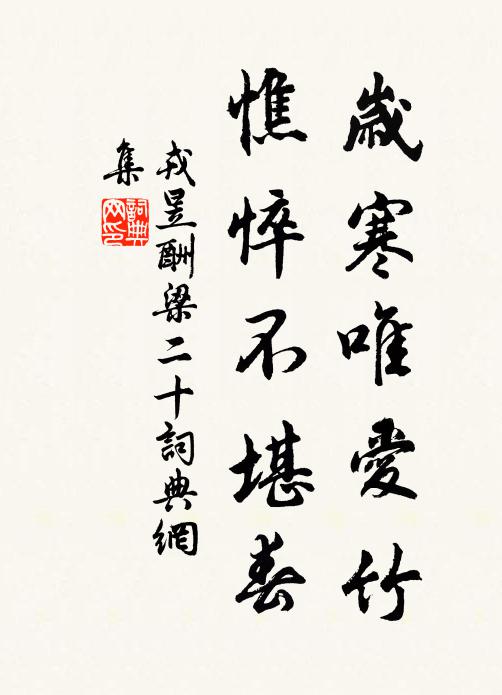 歲寒唯愛竹
憔悴不堪春
戎昱酬梁二十詞典網
集
詞典
网印